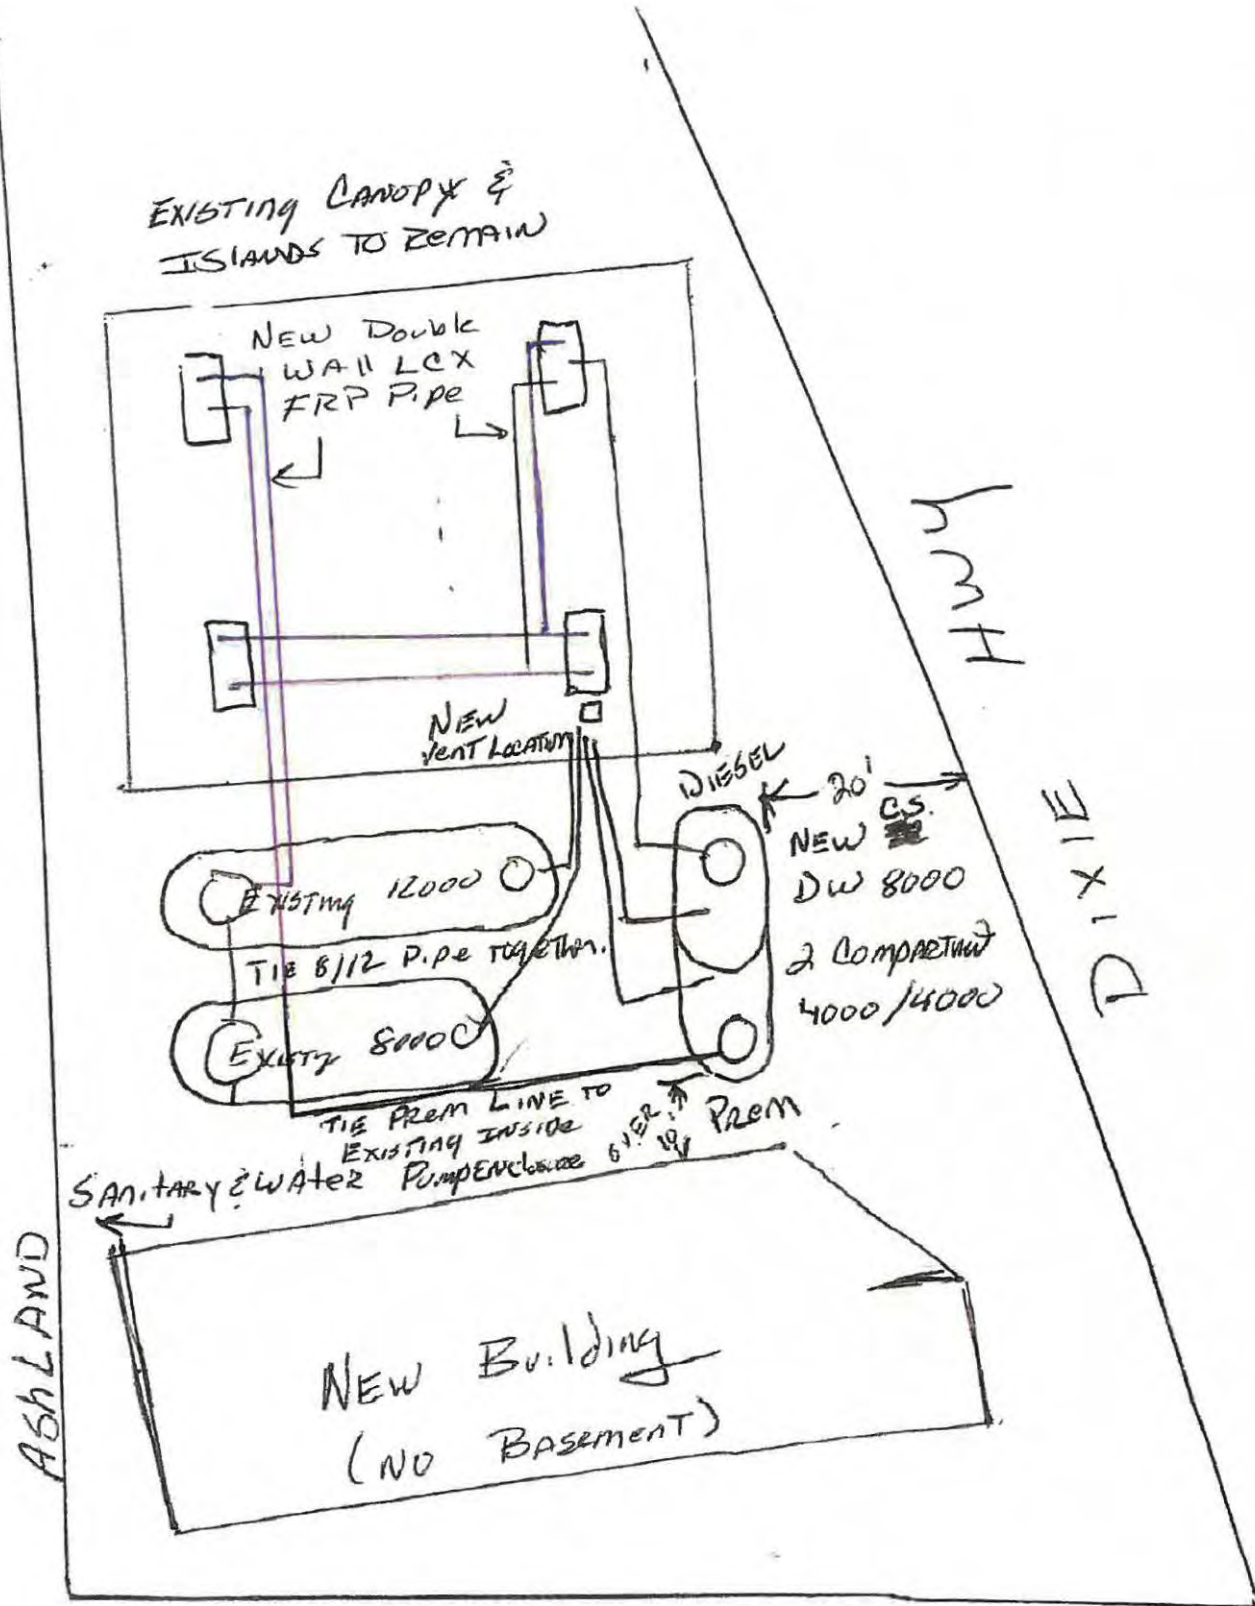 EXISTING CANOPY &
ISLANDS TO REMAIN
NEW Double
WAll LCX
FRP Pipe
NEW
VENT LOCATION
DIESEL
20'
C.S.
NEW
DW 8000
2 COMPARTMENT
4000/4000
HWY
DIXIE
EXISTING 12000
TIE 8/12 PIPE TOGETHER.
8000
TIE PREM LINE TO
EXISTING INSIDE
PUMP ENCLOSURE
OVER 10'
PREM
SANITARY & WATER
ASHLAND
NEW Building
(NO BASEMENT)